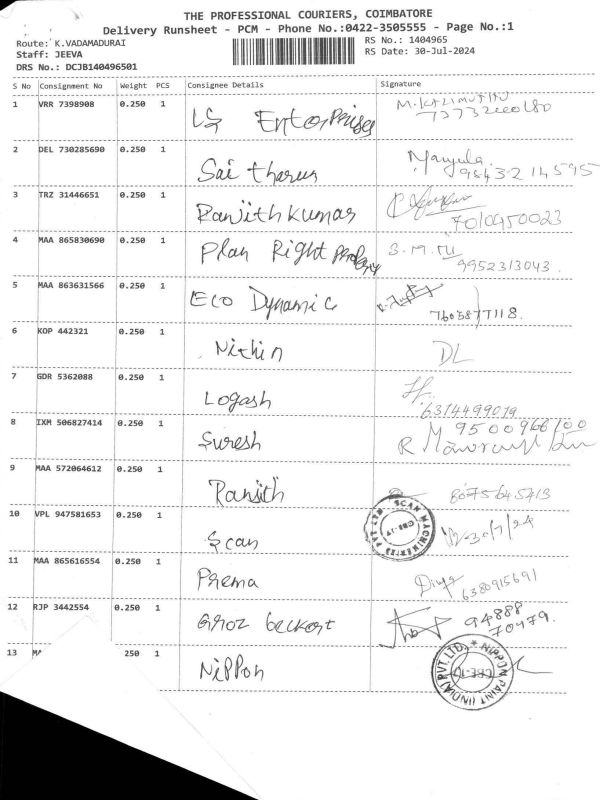 THE PROFESSIONAL COURIERS, COIMBATORE
Delivery Runsheet - PCM - Phone No.:0422-3505555 - Page No.:1
Route: K.VADAMADURAI
RS No.: 1404965
Staff: JEEVA
RS Date: 30-Jul-2024
DRS No.: DCJB140496501
S No Consignment No Weight PCS Consignee Details Signature
1 VRR 7398908 0.250 1 LG Enterprises
2 DEL 730285690 0.250 1 Sai tharun Manjula
9543214595
3 TRZ 31446651 0.250 1 Ranjith kumar
7010950023
4 MAA 865830690 0.250 1 Plan Right
9952313043.
5 MAA 863631566 0.250 1 Eco Dynamic
7605877118.
6 KOP 442321 0.250 1 Nithin DL
7 GDR 5362088 0.250 1 Logash
6374499019
8 IXM 506827414 0.250 1 Suresh 9500966100
9 MAA 572064612 0.250 1 Ranjith 8075645413
10 VPL 947581653 0.250 1 Scan 30/7/24
SCAN MACHINERIES PVT LTD. CBE-17
11 MAA 865616554 0.250 1 Prema Divya
6380915691
12 RJP 3442554 0.250 1 Groz beckert 94888
70479.
13 250 1 Nippon
NIPPON PAINT (INDIA) PVT. LTD.